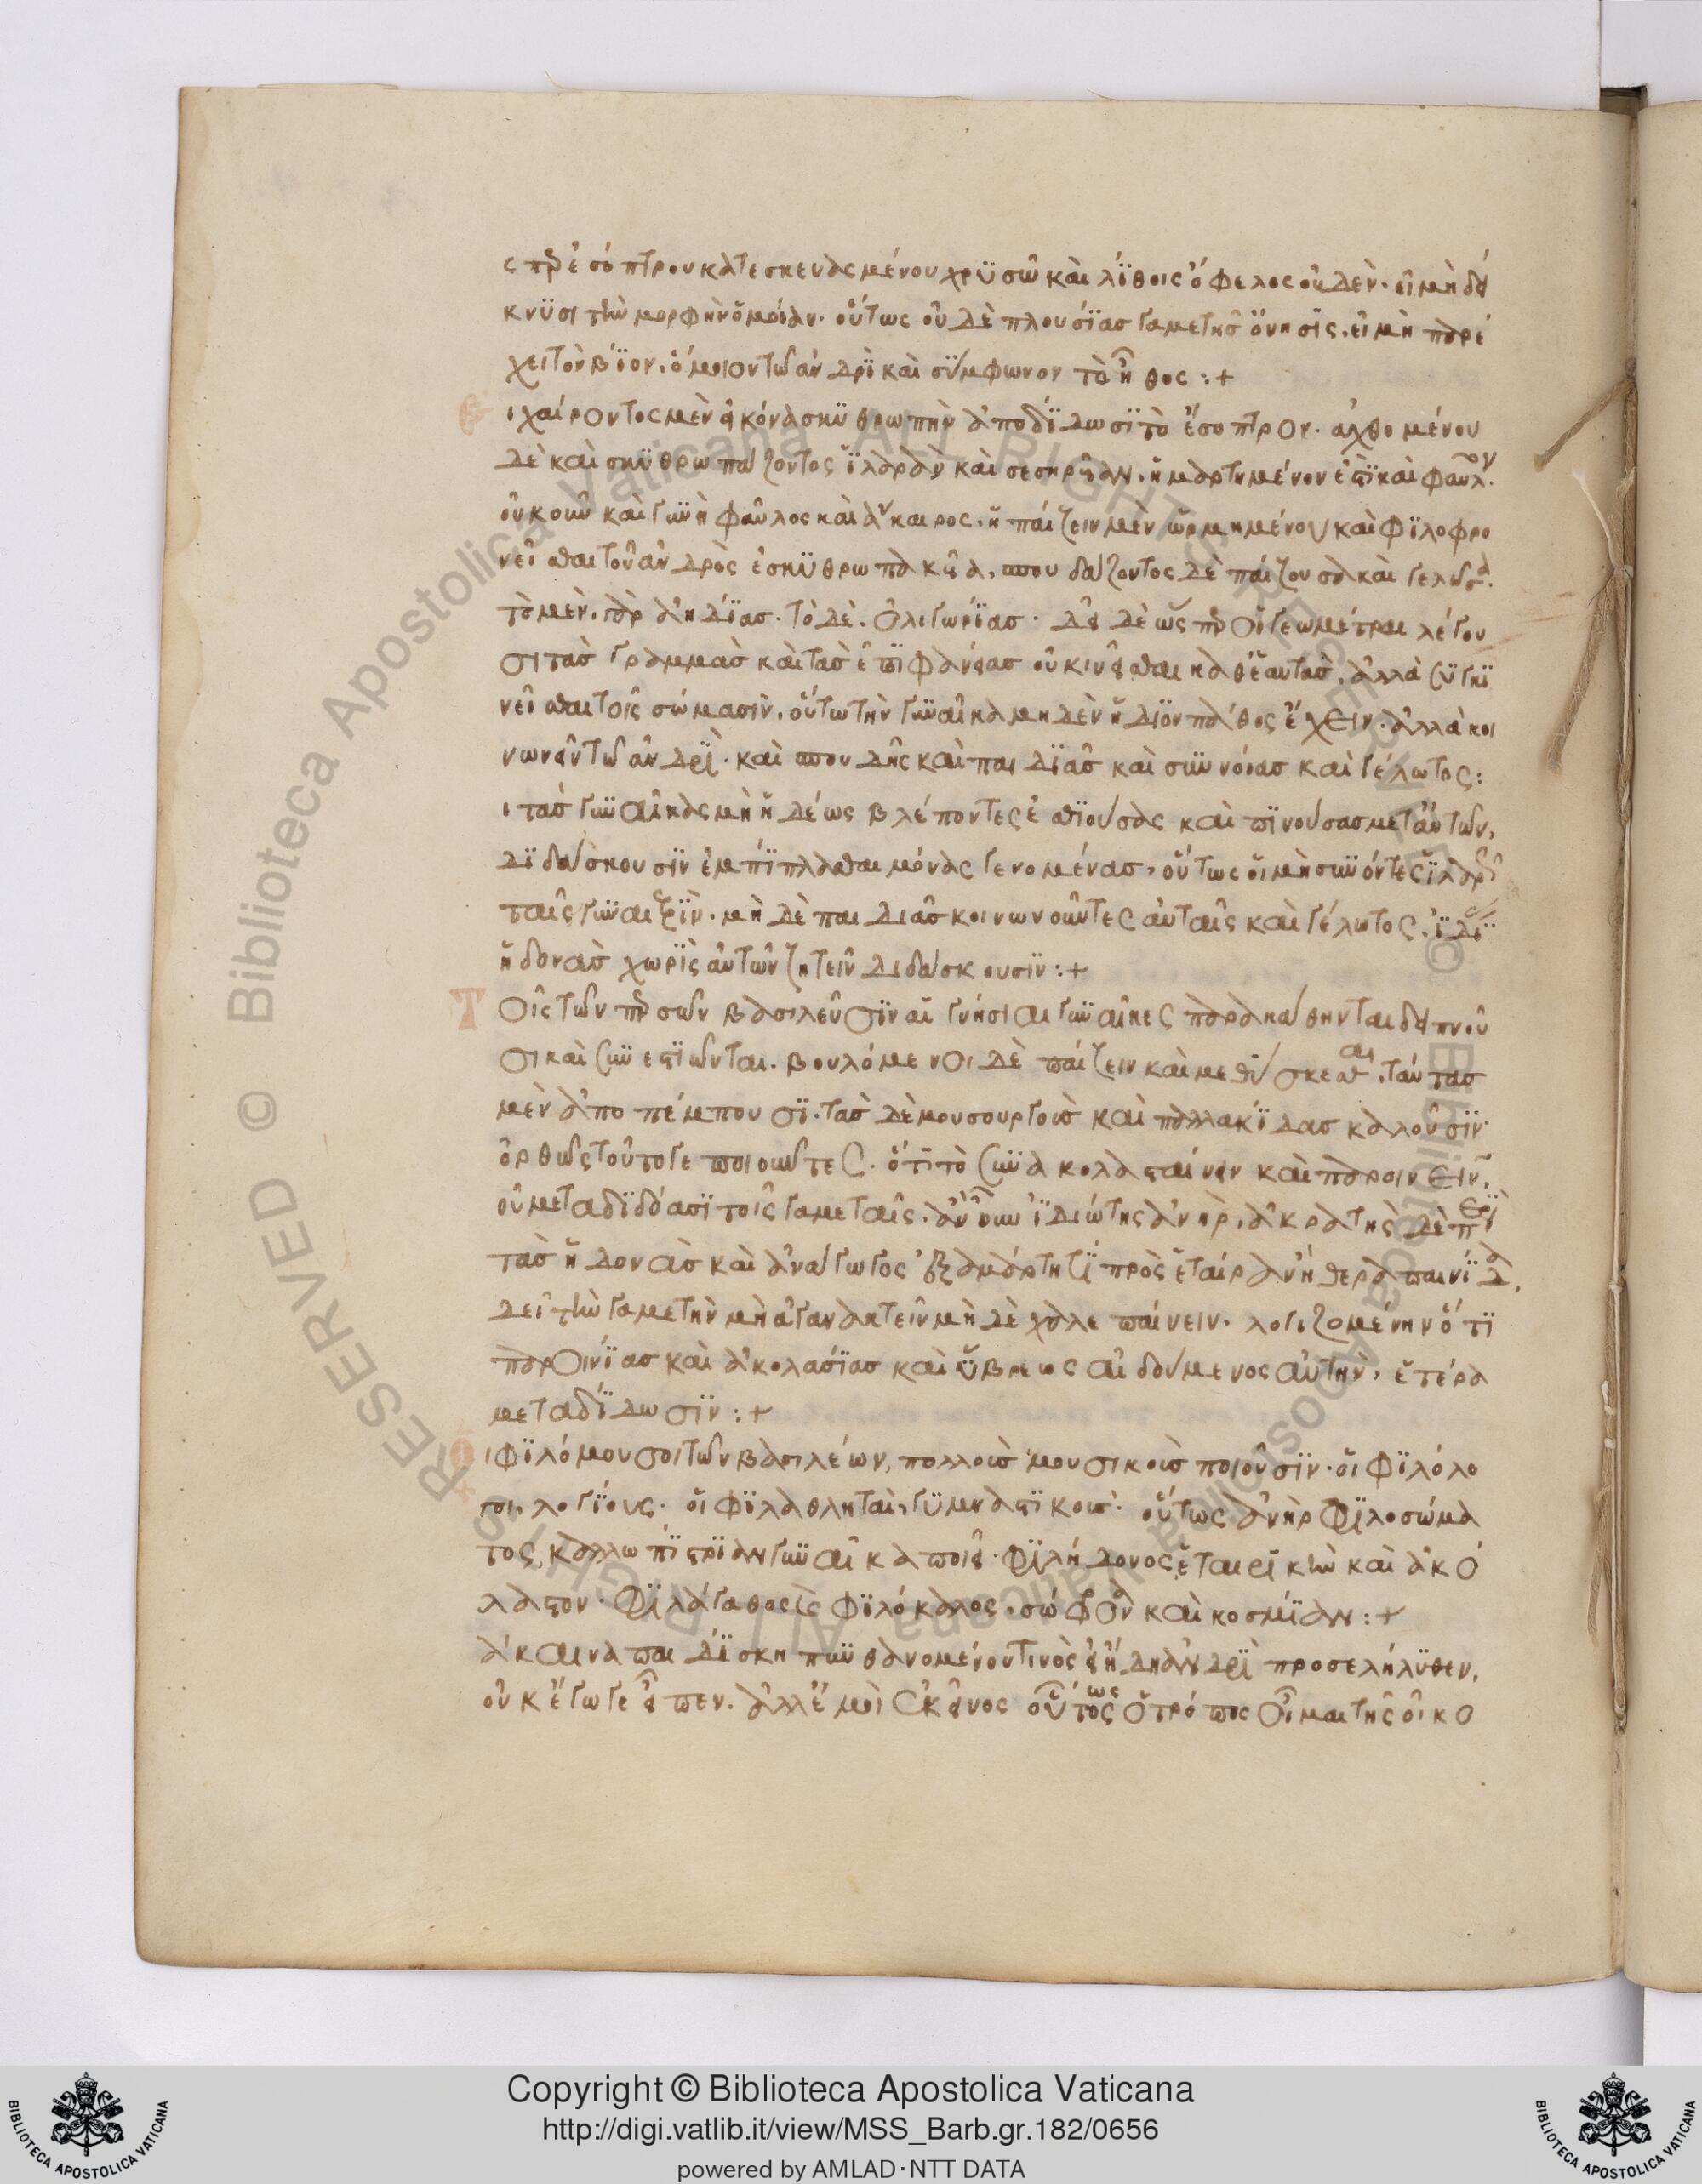 ςπερ ἐσόπτρου κατεσκευασμένου χρϋσῶ καὶ λΐθοις ὄφελος οὐδὲν. εἰ μὴ δεί
κνϋσι τὴν μορφὴν ὁμοίαν. οὕτως οὐδὲ πλουσΐας γαμετῆς ὄνησϊς. εἰ μὴ παρέ
χει τὸν βΐον. ὅμοιον τῶ ἀνδρῒ καὶ σΰμφωνον τὸ ἦθος :+
ι χαίροντος μὲν εἰκόνα σκϋθρωπὴν ἀποδΐδωσϊ τὸ ἔσοπτρον. ἀχθομένου
δὲ καὶ σκϋθρωπάζοντος ϊλαρὰν καὶ σεσηρυῖαν. ἡμαρτημένον ἐστῒ καὶ φαῦλον.
οὐκοῦν καὶ γυνὴ φαῦλος καὶ ἄκαιρος. ἡ παίζειν μὲν ὡρμημένου καὶ φϊλοφρο
νεῖσθαι τοῦ ἀνδρὸς ἐσκϋθρωπακυῖα. σπουδάζοντος δὲ παίζουσα καὶ γελῶσα.
τὸ μὲν, γὰρ ἀηδΐας. τὸ δὲ. ὀλιγωρΐας. δεῖ δὲ ὥσπερ οἱ γεωμέτραι λέγου
σι τὰς γραμμὰς καὶ τὰς ἐπϊφανείας οὐ κινεῖσθαι καθ' ἑαυτὰς. ἀλλὰ συγκϊ
νεῖσθαι τοῖς σώμασϊν. οὕτω τὴν γυναῖκα μηδὲν ἴδϊον πάθος ἔχειν. ἀλλὰ κοι
νωνεῖν τῶ ἀνδρῒ. καὶ σπουδῆς καὶ παιδϊᾶς καὶ συννοίας καὶ γέλωτος:
ι τὰς γυναῖκας μὴ ἡδέως βλέποντες ἐσθϊούσας καὶ πϊνούσας μετ' αὐτῶν,
δϊδάσκουσϊν ἐμπΐπλασθαι μόνας γενομένας. οὕτως οἱ μὴ συνόντες ϊλαρῶς
ταῖς γυναιξῒν. μὴ δὲ παιδιᾶς κοινωνοῦντες αὐταῖς καὶ γέλωτος. ἰδίας
ἡδονὰς χωρῒς αὐτῶν ζητεῖν διδάσκουσϊν :+
Τοῖς τῶν περσῶν βασιλεῦσϊν αἱ γνήσιαι γυναῖκες παρακάθηνται δειπνοῦ
σι καὶ συνεστϊῶνται. βουλόμενοι δὲ παίζειν καὶ μεθΰσκεσθαι, ταύτας
μὲν ἀποπέμπουσϊ. τὰς δὲ μουσουργοὺς καὶ παλλακΐδας καλοῦσϊν.
ὀρθῶς τοῦτο γε ποιοῦντες. ὅτϊ τὸ συνακολασταίνειν καὶ παροινεῖν,
οὐ μεταδϊδόασϊ τοῖς γαμεταῖς. ἂν οὖν ἰδιώτης ἀνὴρ. ἀκρατὴς δὲ περῒ
τὰς ἡδονὰς καὶ ἀνάγωγος ἐξαμάρτη τϊ πρὸς ἑταίραν ἢ θεραπαινΐδα,
δεῖ τὴν γαμετὴν μὴ ἀγανακτεῖν μὴ δὲ χαλεπαίνειν. λογιζομένην ὅτϊ
παροινΐας καὶ ἀκολασΐας καὶ ὕβρεως αἰδούμενος αὐτὴν, ἑτέρα
μεταδΐδωσϊν :+
ι φϊλόμουσοι τῶν βασιλέων, πολλοὺς μουσικοὺς ποιοῦσϊν. οἱ φϊλόλο
γοι, λογΐους. οἱ φϊλαθληταὶ, γυμναστϊκοὺς. οὕτως ἀνὴρ φϊλοσώμα
τος, καλλωπΐστρϊαν γυναῖκα ποιεῖ. φϊλήδονος, ἑταιρϊκὴν καὶ ἀκό
λαστον. φϊλάγαθος καὶ φϊλόκαλος. σώφρονα καὶ κοσμΐαν :+
άκαινα παιδΐσκη πυνθανομένου τινὸς εἰ ἤδη ἀνδρῒ προσελήλυθεν,
οὐκ ἔγωγε εἶπεν. ἀλλ' ἐμοὶ ἐκεῖνος οὗτος ὁ τρόπος οἶμαι τῆς οἰκο
Copyright © Biblioteca Apostolica Vaticana
http://digi.vatlib.it/view/MSS_Barb.gr.182/0656
powered by AMLAD·NTT DATA